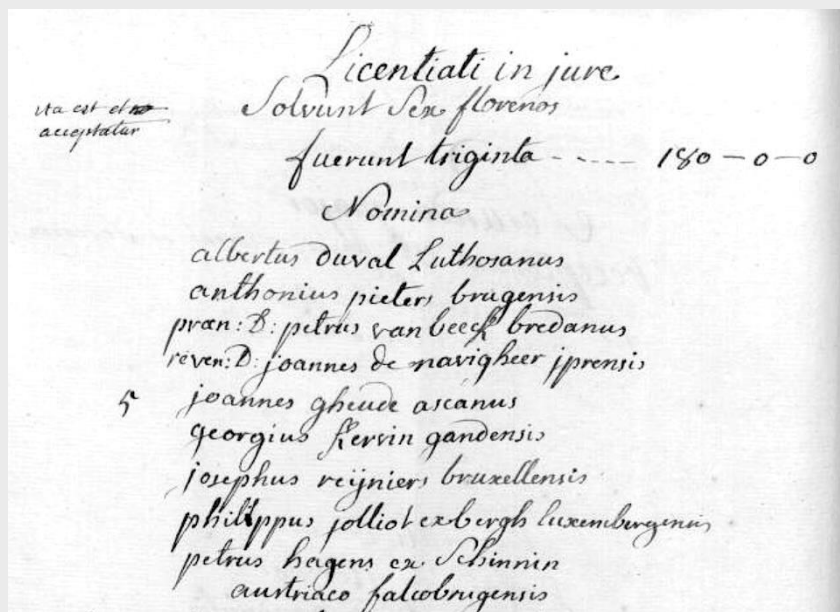 Licentiati in jure
Solvunt Sex florenos
ita est et
acceptatur
fuerunt triginta - - - - - 180 - 0 - 0
Nomina
albertus duval Luthosanus
anthonius pieters brugensis
præn: D: petrus van beeck bredanus
reven: D: joannes de navigheer jprensis
5 joannes gheude ascanus
georgius Kervin gandensis
josephus reijniers bruxellensis
philippus jolliot ex bergh luxemburgensis
petrus hagens ex Schinnin
austriaco falcobrugensis